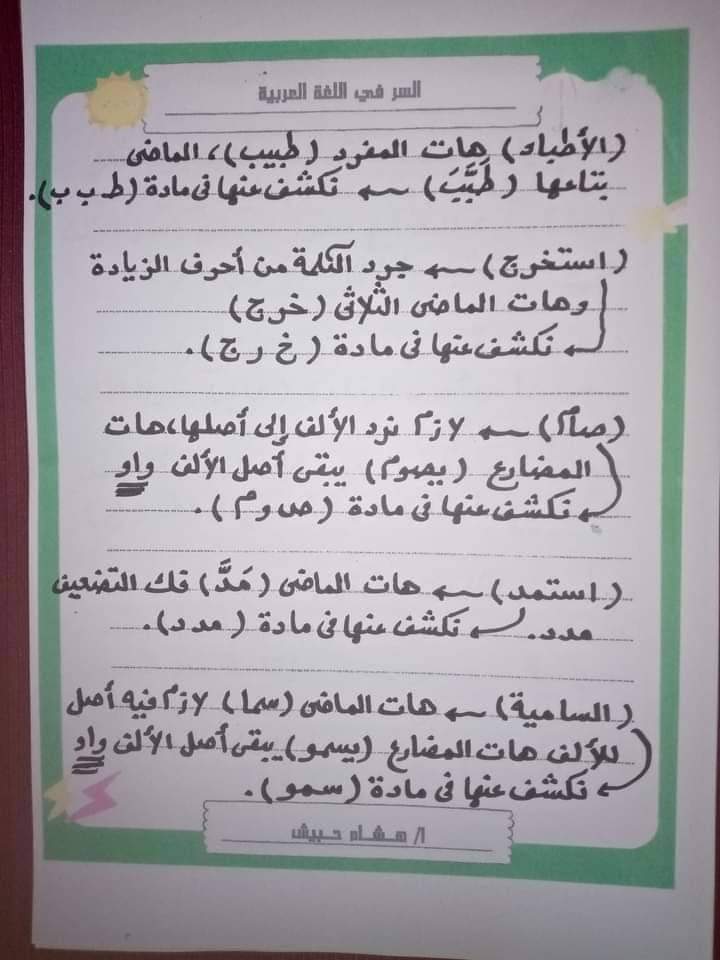 السر في اللغة العربية
(الأطباء) هات المفرد (طبيب)، الماضى
بتاعها (طَبَّبَ) ← نكشف عنها فى مادة (ط ب ب).
(استخرج) ← جرد الكلمة من أحرف الزيادة
وهات الماضى الثلاثى (خرج)
نكشف عنها فى مادة (خ ر ج).
(صام) ← لازم نرد الألف إلى أصلها، هات
المضارع (يصوم) يبقى أصل الألف واو
نكشف عنها فى مادة (ص و م).
(استمد) ← هات الماضى (مَدَّ) فك التضعيف
مدد. نكشف عنها فى مادة (مدد).
(السامية) ← هات الماضى (سما) لازم فيه أصل
للألف هات المضارع (يسمو) يبقى أصل الألف واو
نكشف عنها فى مادة (سمو).
أ/ هشام حبيش